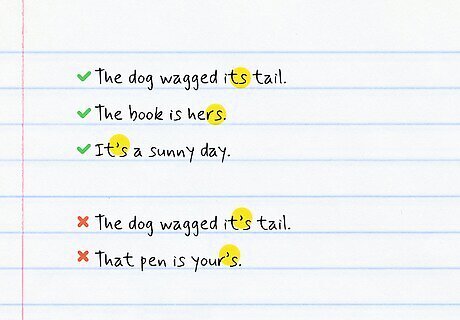 The dog wagged its tail.
The book is hers.
It's a sunny day.
The dog wagged it's tail.
That pen is your's.